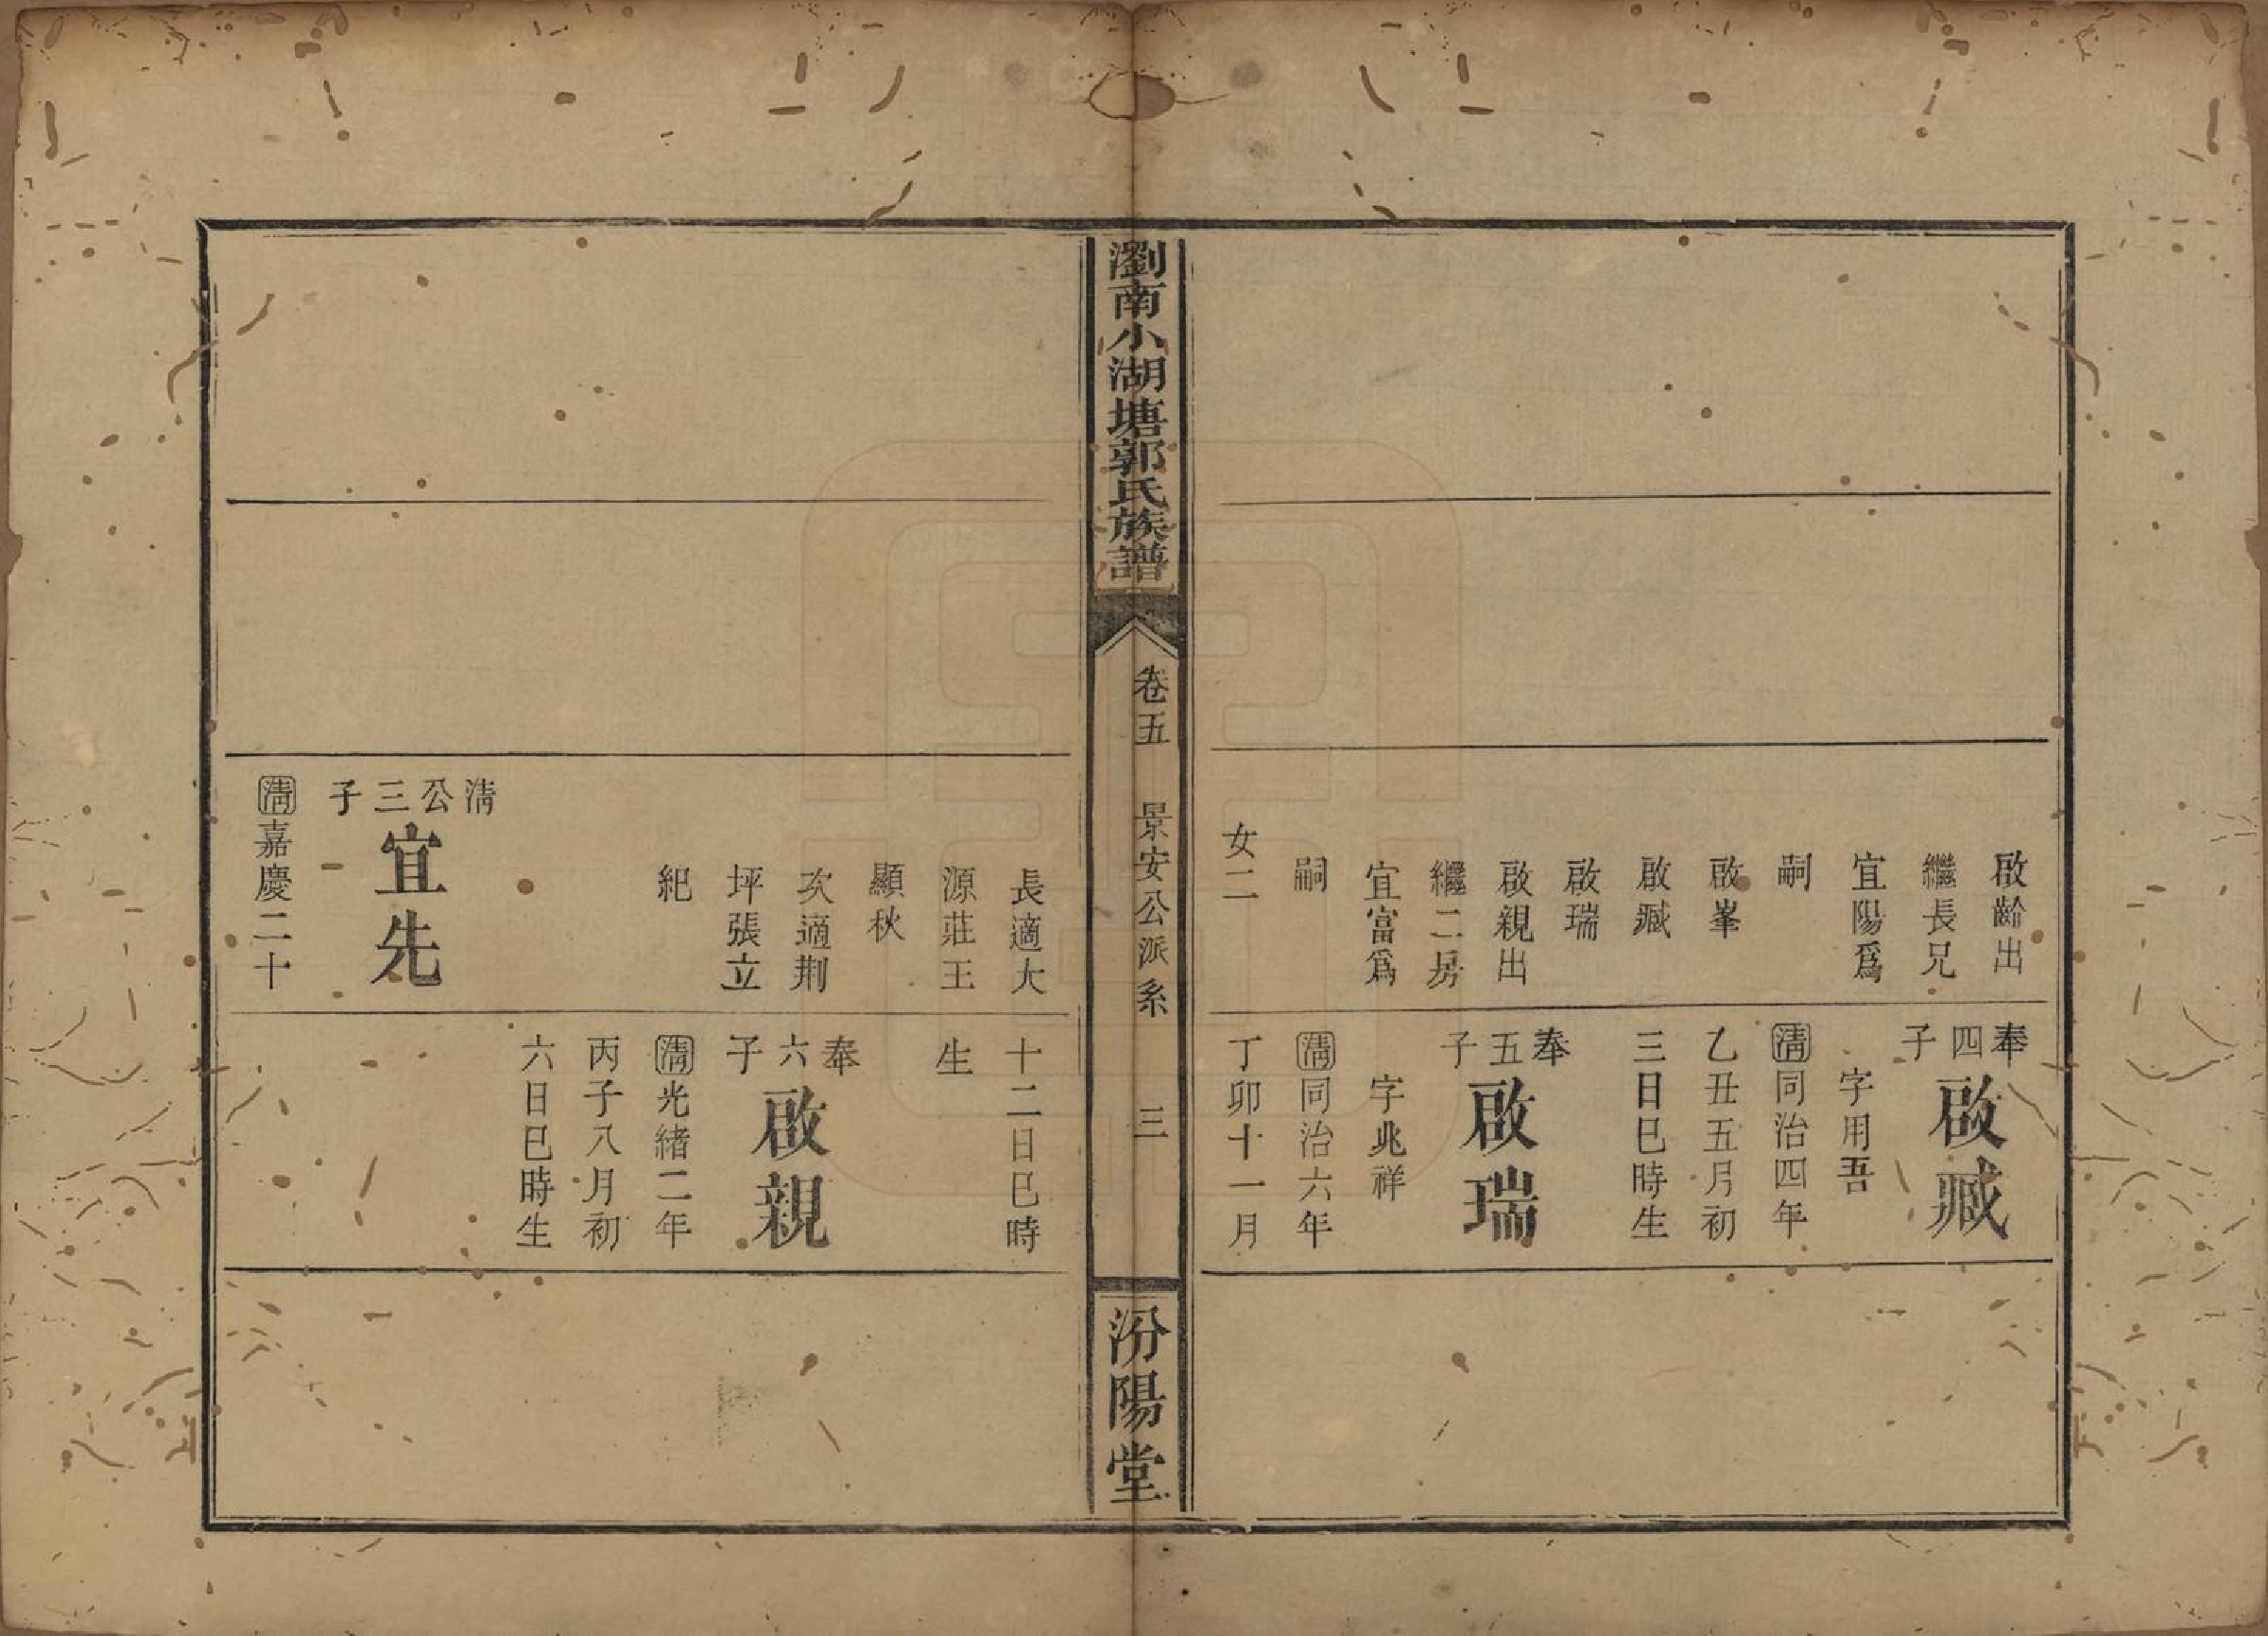 啟齡出
繼長兄
宜陽爲
嗣
啟峯
啟臧
啟瑞
啟親出
繼二房
宜富爲
嗣
女二
奉四子
啟臧
字用吾
清同治四年
乙丑五月初
三日巳時生
奉五子
啟瑞
字兆祥
清同治六年
丁卯十一月
瀏南小湖塘郭氏族譜
卷五
景安公派系
三
汾陽堂
長適大
源莊王
顯秋
次適荆
坪張立
紀
清公三子
宜先
清嘉慶二十
十二日巳時
生
奉六子
啟親
清光緒二年
丙子八月初
六日巳時生